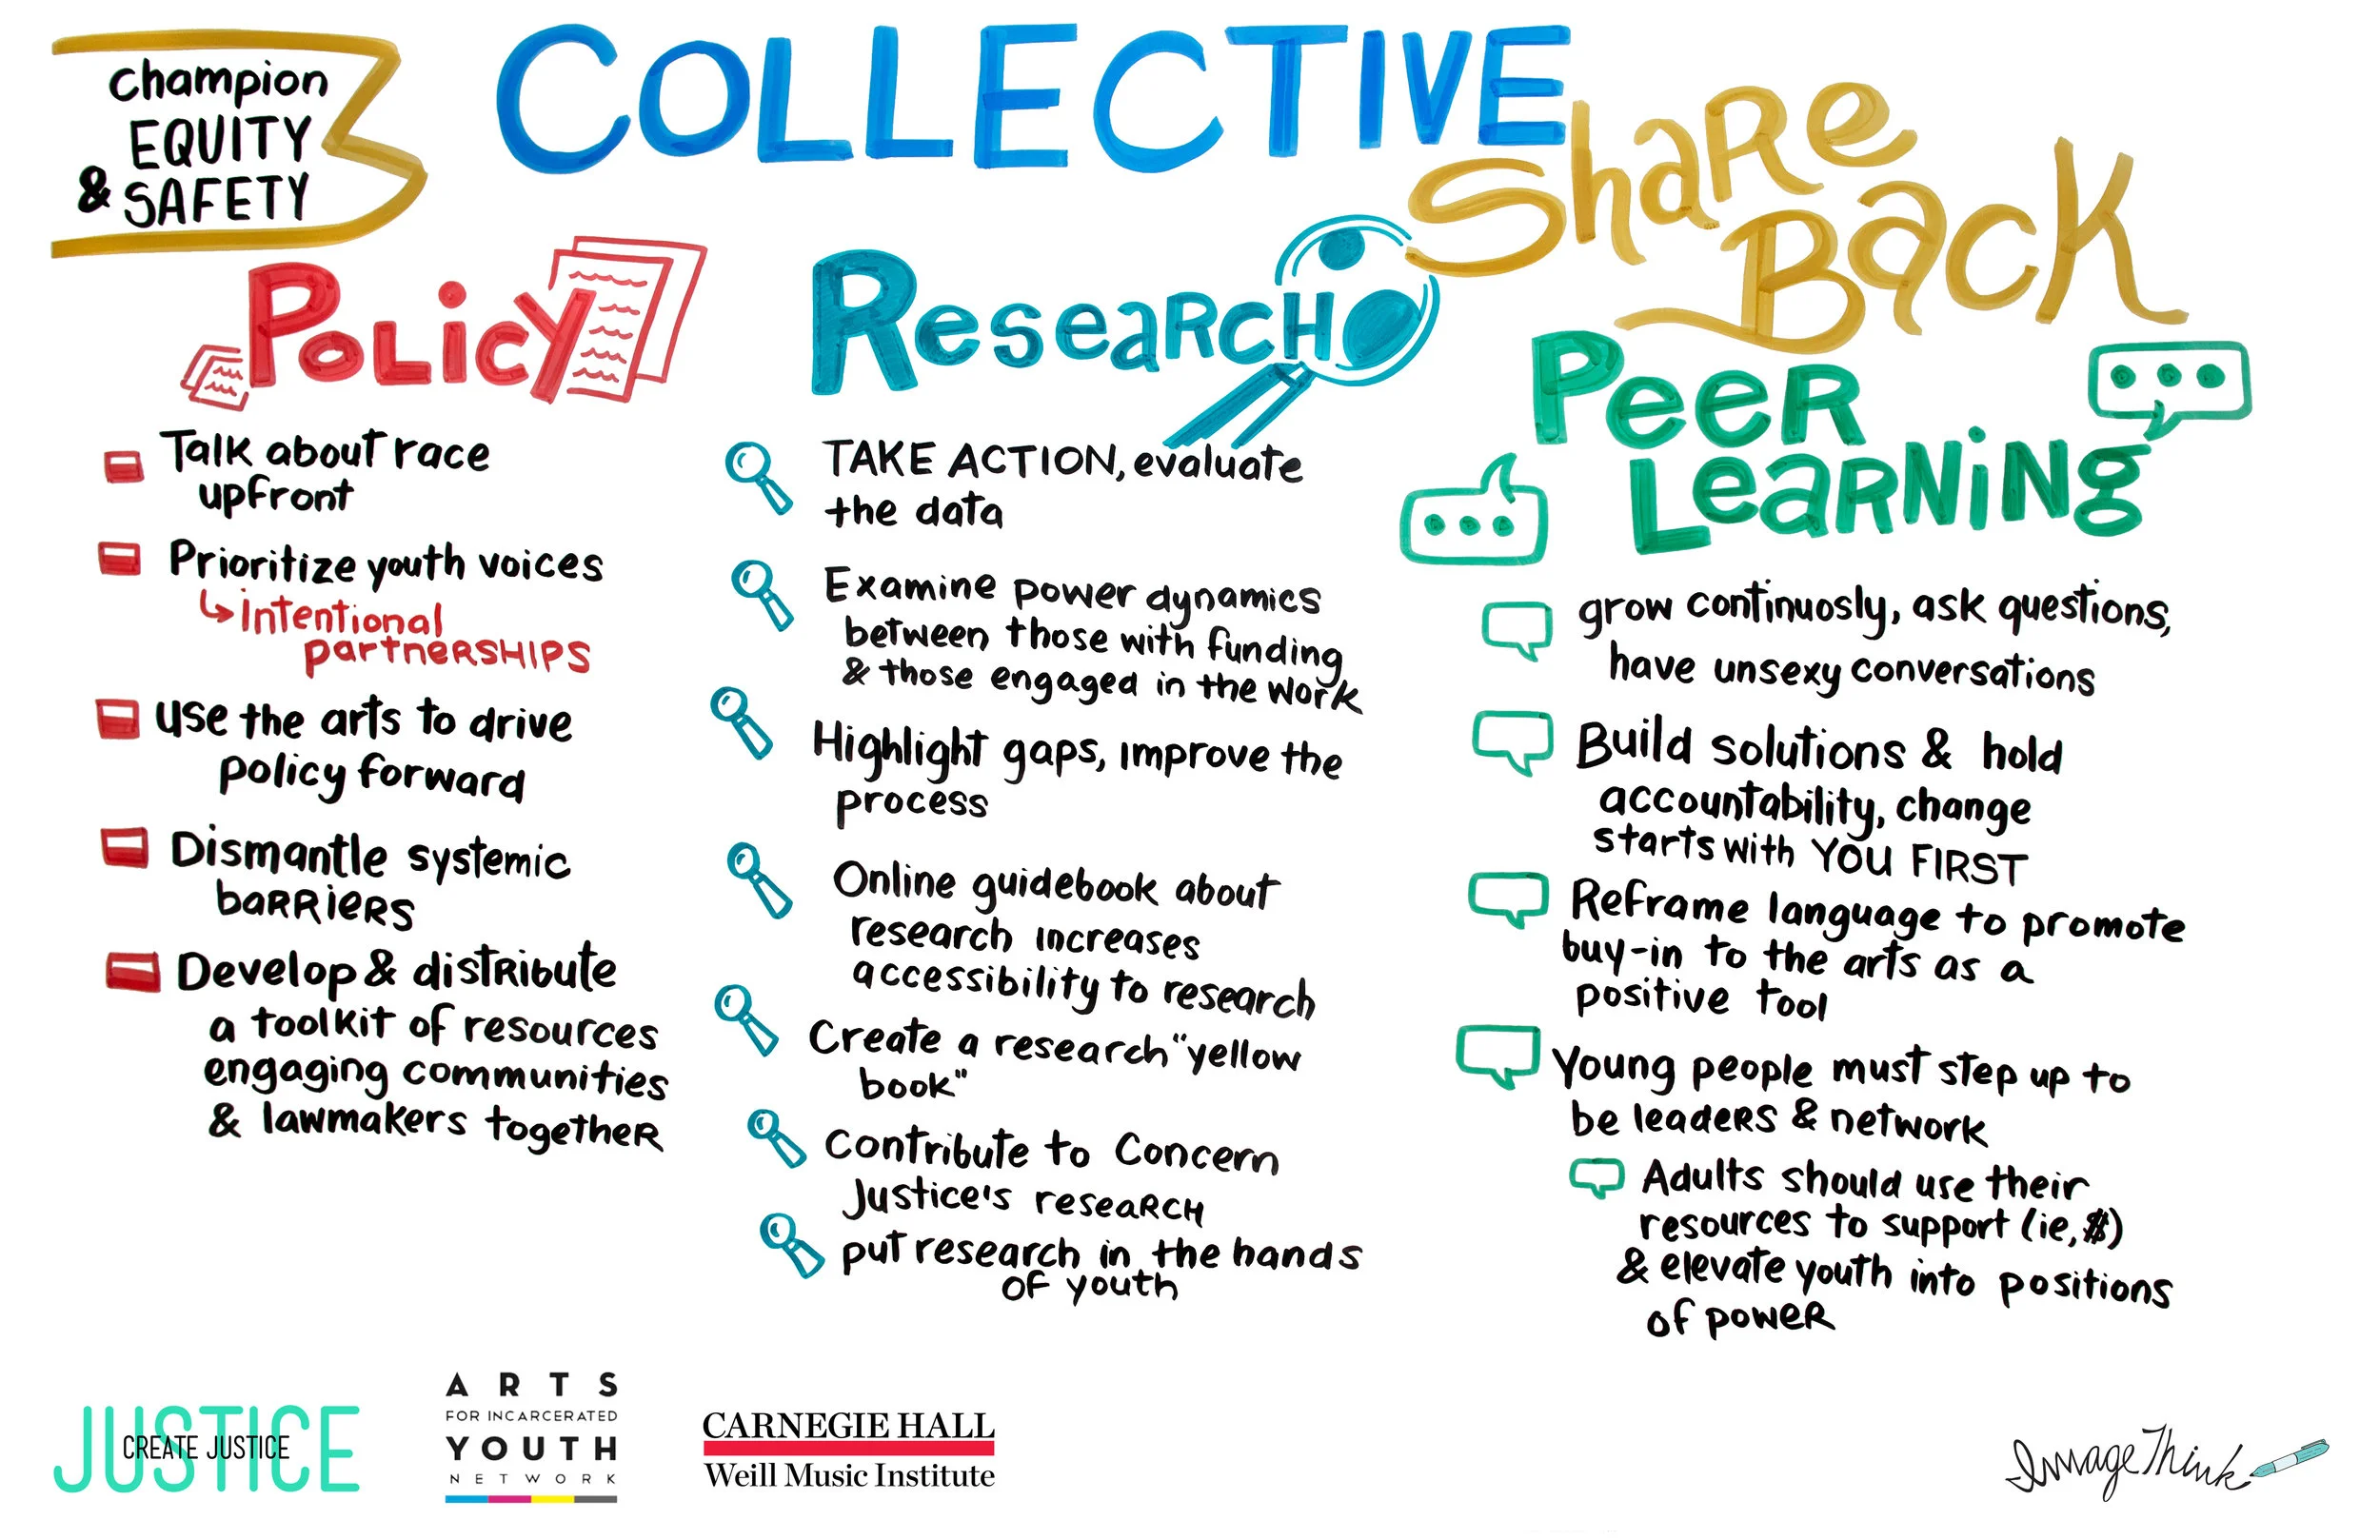 Champion
EQUITY
& SAFETY
COLLECTIVE
Share
Back
Policy
Talk about race
upfront
Prioritize youth voices
Intentional
partnerSHIPS
use the arts to drive
policy forward
Dismantle systemic
baRRieRS
Develop & distRibute
a toolkit of resources
engaging communities
& lawmakers togetheR
ReseaRCH
TAKE ACTION, evaluate
the data
Examine power dynamics
between those with funding
& those engaged in the work
Highlight gaps, improve the
process
Online guidebook about
research increases
accessibility to research
Create a research "yellow
book"
Contribute to Concern
Justice's reseaRCH
put research in the hands
of youth
PeeR
LeaRNiNg
grow continuosly, ask questions,
have unsexy conversations
Build solutions & hold
accountability, change
starts with YOU FIRST
Reframe language to promote
buy-in to the arts as a
positive tool
Young people must step up to
be leadeRS & network
Adults should use their
resources to support (ie, $)
& elevate youth into positions
of poweR
JUSTICE
CREATE JUSTICE
ARTS
FOR INCARCERATED
YOUTH
NETWORK
CARNEGIE HALL
Weill Music Institute
ImageThink